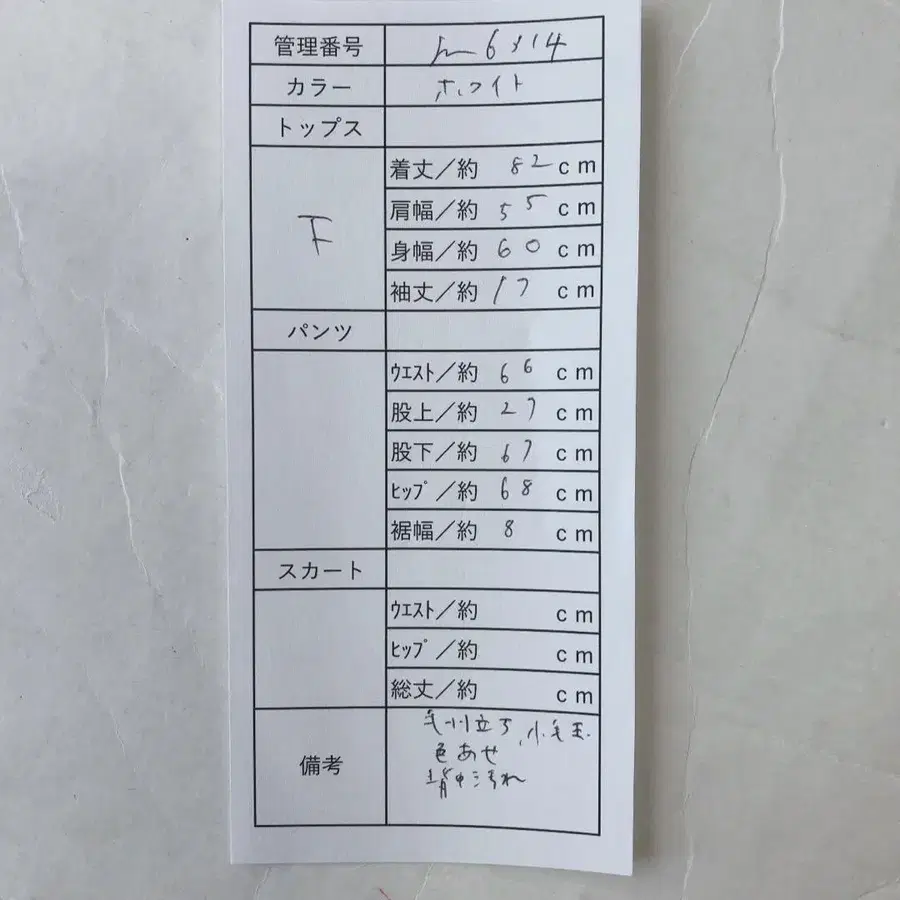 管理番号
カラー ホワイト
トップス
F
着丈／約 82 cm
肩幅／約 55 cm
身幅／約 60 cm
袖丈／約 17 cm
パンツ
ｳｴｽﾄ／約 66 cm
股上／約 27 cm
股下／約 67 cm
ﾋｯﾌﾟ／約 68 cm
裾幅／約 8 cm
スカート
ｳｴｽﾄ／約 cm
ﾋｯﾌﾟ／約 cm
総丈／約 cm
備考
毛羽立ち、小毛玉
色あせ
背中汚れ